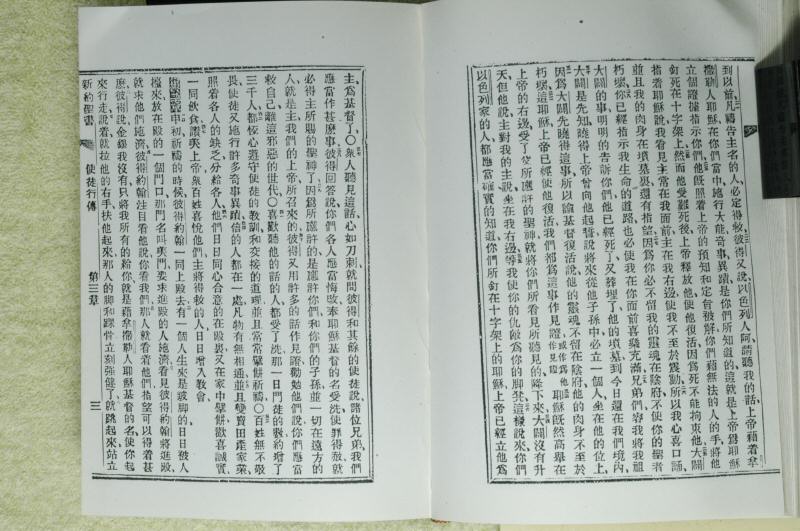 到以前凡禱告主名的人必定得救彼得又說以色列人阿請聽我的話上帝藉着拿
撒勒人耶穌在你們當中施行大能奇事異蹟是你們所知道的這就是上帝爲耶穌
立個證據指示你們他旣照着上帝的預知和定旨被解你們藉無法的人的手將他
釘死在十字架上然而他受難死後上帝釋放他使他復活因爲死不能拘束他大闢
指着耶穌說我看見主常在我面前主在我右邊使我不至於震動所以我心喜口誦
並且我的肉身在墳墓裏還有指望因爲你必不留我的靈魂在陰府不使你的聖者
朽壞你已經指示我生命的道路也必使我在你面前喜樂充滿兄弟們容我將我祖
大闢的事明明的告訴你們他已經死了又葬埋了他的墳墓到今日還在我們境內
大闢是先知曉得上帝曾向他起誓說將來從他子孫中必立一個人坐在他的位上
因爲大闢先曉得這事所以論基督復活說他的靈魂不留在陰府他的肉身不至於
朽壞這耶穌上帝已經使他復活我們都爲這事作見證 耶穌旣然高舉在
上帝的右邊受了父所應許的聖神就將你們所看見所聽見的降下來大闢沒有升
天但他說主對我的主說坐在我右邊等我使你的仇敵爲你的脚凳這樣說來你們
以色列家的人都應當確實的知道你們所釘在十字架上的耶穌上帝已經立他爲
主爲基督了〇衆人聽見這話心如刀刺就問彼得和其餘的使徒說諸位兄弟我們
應當作甚麽事彼得回答說你們各人應當悔改奉耶穌基督的名受洗使罪得赦就
必得主所賜的聖神了因爲所應許的是應許你們和你們的子孫並一切在遠方的
人就是主我們的上帝所召來的彼得又用許多的話作見證勸勉他們說你們應當
救自己離這邪惡的世代〇喜歡聽他的話的人都受了洗那一日門徒的數約增了
三千人都恆心遵守使徒的敎訓和交接的道理並且常常擘餅祈禱〇百姓無不敬
畏使徒又施行許多奇事異蹟信的人都在一處凡物有無相通並且變賣田產家業
照着各人的缺乏分給各人他們日日同心合意的在殿裏又在家中擘餅歡喜誠實
一同飲食讚美上帝衆百姓喜悅他們主將得救的人日日增入敎會
第三章申初祈禱的時候彼得約翰一同上殿去有一個人生來是跛脚的日日被人
擡來放在殿的一個門口那門名叫美門要求進殿的人施濟看見彼得約翰將進殿
就求他們施濟彼得約翰注目看他說你看我們那人就看着他們指望可以得着甚
麽彼得說金銀我沒有只將我所有的給你就是藉拿撒勒人耶穌基督的名使你起
來行走說着就拉他的右手扶他起來那人的脚和踝骨立刻强健了就跳起來站立
新約聖書 使徒行傳 第三章 三